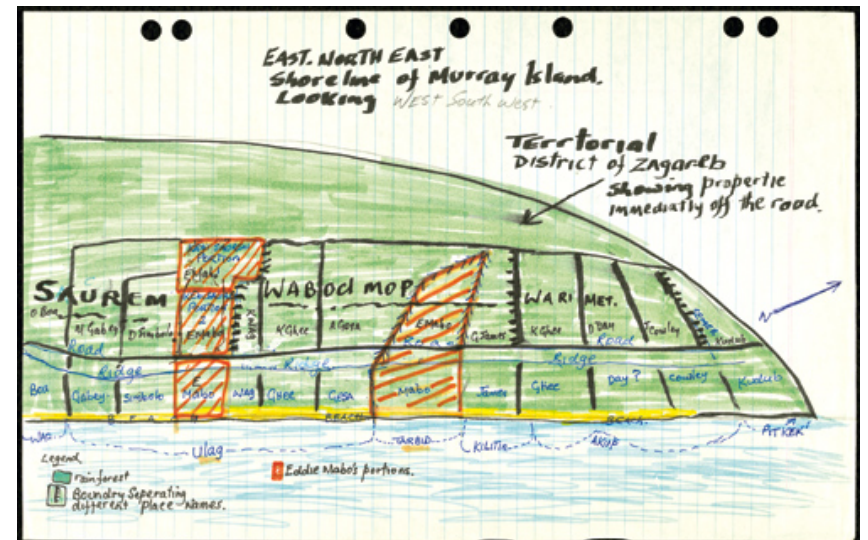 EAST. NORTH EAST
Shoreline of Murray Island.
Looking West South West.
Territorial
District of Zagareb
showing propertie
immediatly off the road.
PORTION
EMabo
SAUREM
WABOd MOP
WARI MET.
PORTION
EMabo
O Boa
M Gabey
D Simbolo
K Wag
K Ghee
A Gesa
EMabo
G James
K Ghee
D Day
J Cowley
Kudub
N
Road
Road
Road
Ridge
Ridge
Ridge
Boa
Gabey
Simbolo
E Mabo
Wag
Ghee
Gesa
Mabo
James
Ghee
Day ?
Cowley
Kudub
BEACH
BEACH
Wag
Ulag
TARBID
KILITIE
AKUP
Legend
rainforest
Boundry Seperating
different place names.
Eddie Mabo's portions.